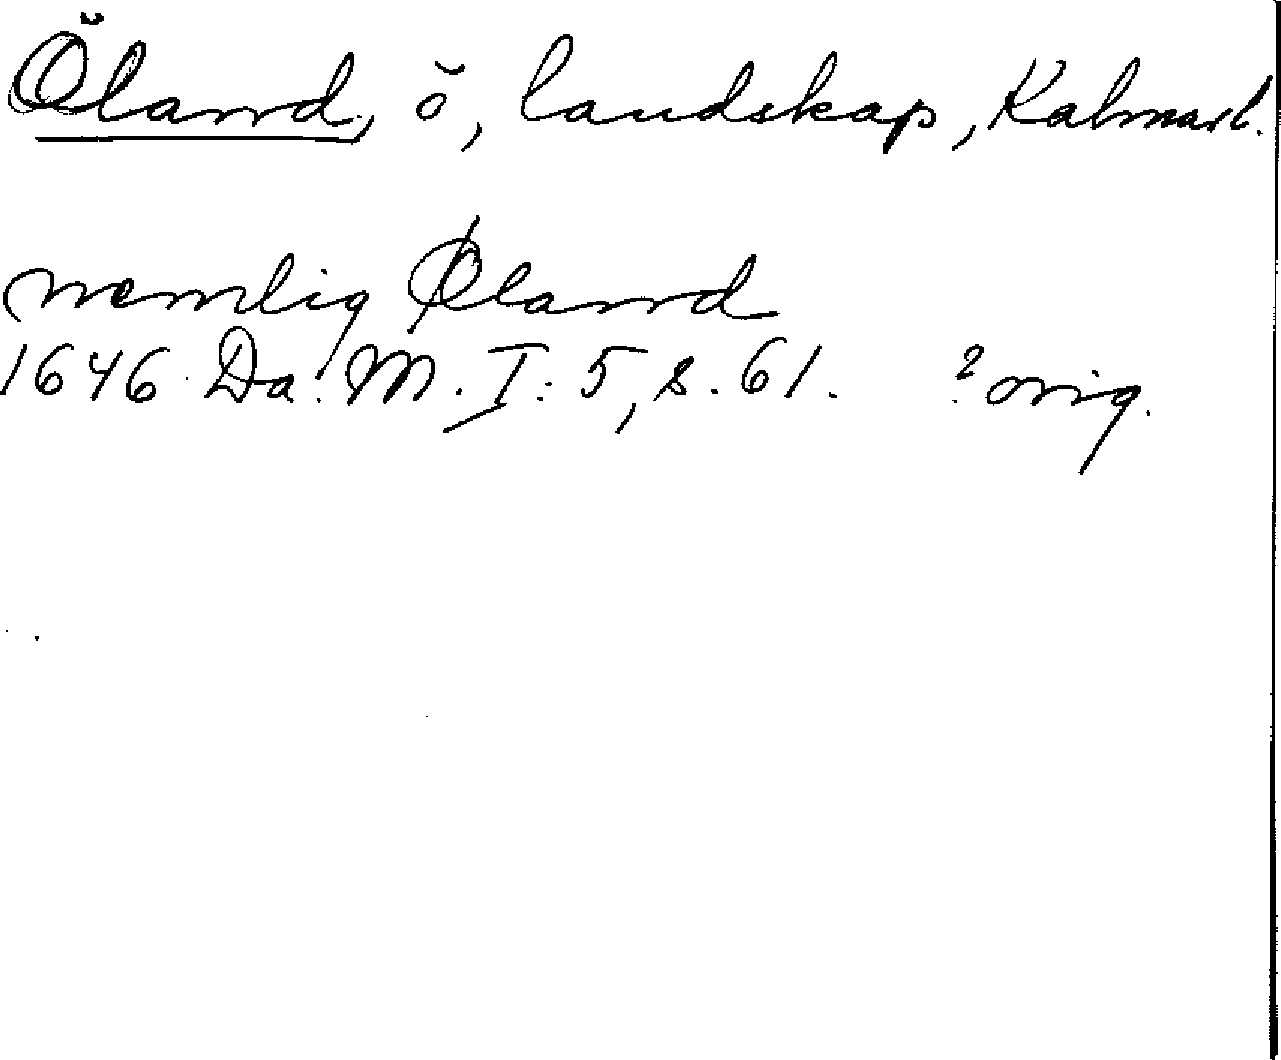 Öland, ö, landskap, Kalmarl.
nemlig Øland
1646 Da. M. I: 5, s. 61. ? orig.